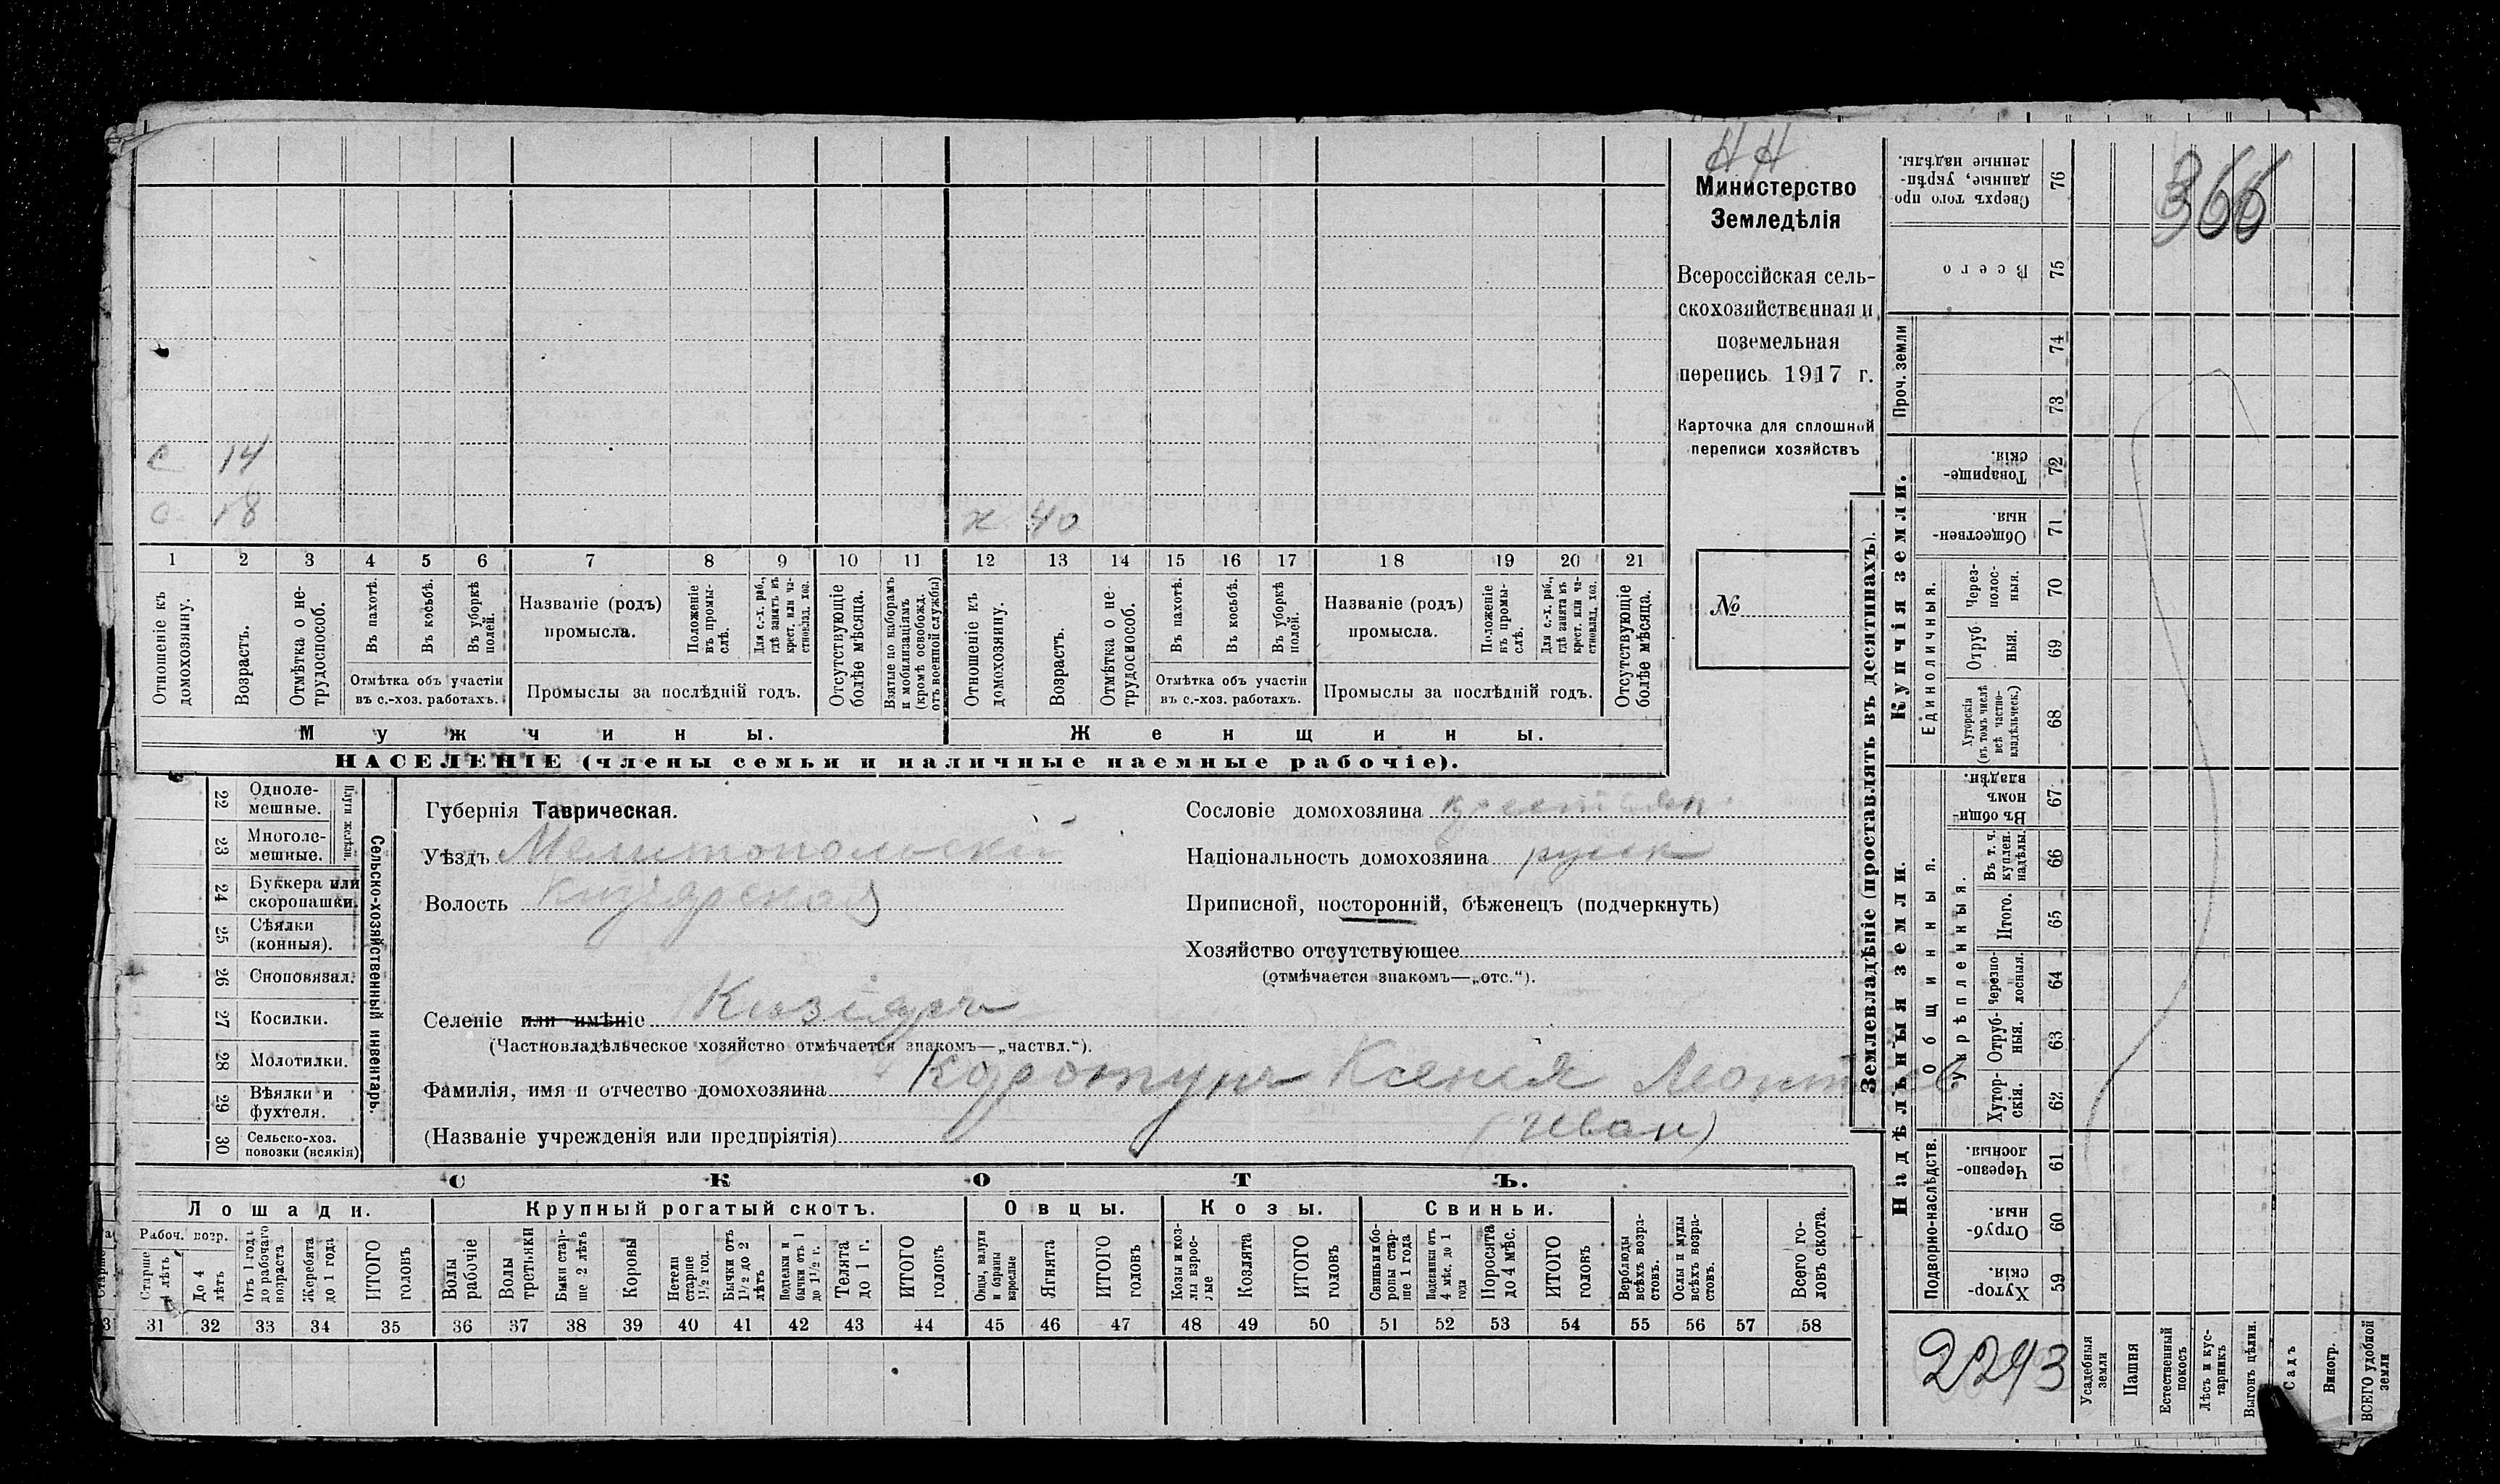 Н Н
Министерство
Земледѣлія
Всероссійская сель-
скохозяйственная и
поземельная
перепись 1917 г.
Карточка для сплошной
переписи хозяйствъ
№
с 14
с. 18
ж 40
1 2 3 4 5 6 7 8 9 10 11 12 13 14 15 16 17 18 19 20 21
Отношеніе къ домохозяину.
Возрастъ.
Отмѣтка о не-трудоспособ.
Въ пахотѣ.
Въ косьбѣ.
Въ уборкѣ полей.
Отмѣтка объ участіи
въ с.-хоз. работахъ.
Названіе (родъ)
промысла.
Положеніе въ промы-слѣ.
Для с.-х. раб., гдѣ занятъ въ крест. или ча-стновлад. хоз.
Промыслы за послѣдній годъ.
Отсутствующіе болѣе мѣсяца.
Взятые по наборамъ и мобилизаціямъ (кромѣ освобожд. отъ военной службы)
Отношеніе къ домохозяину.
Возрастъ.
Отмѣтка о не-трудоспособ.
Въ пахотѣ.
Въ косьбѣ.
Въ уборкѣ полей.
Отмѣтка объ участіи
въ с.-хоз. работахъ.
Названіе (родъ)
промысла.
Положеніе въ промы-слѣ.
Для с.-х. раб., гдѣ занята въ крест. или ча-стновлад. хоз.
Промыслы за послѣдній годъ.
Отсутствующіе болѣе мѣсяца.
Мужчины.
Женщины.
НАСЕЛЕНІЕ (члены семьи и наличные наемные рабочіе).
22 Одноле-мешные.
23 Многоле-мешные.
Плуги желѣзн.
24 Буккера или скоропашки.
25 Сѣялки (конныя).
26 Сноповязал.
27 Косилки.
28 Молотилки.
29 Вѣялки и фухтеля.
30 Сельско-хоз. повозки (всякія)
Сельско-хозяйственный инвентарь.
Губернія Таврическая.
Уѣздъ Мелитопольскій
Волость Кизіярская
Селеніе или имѣніе Кизіяръ
(Частновладѣльческое хозяйство отмѣчается знакомъ—„частвл.“).
Фамилія, имя и отчество домохозяина Коротунъ Ксенія Леонтьев
(Названіе учрежденія или предпріятія) (Иван)
Сословіе домохозяина крестьян.
Національность домохозяина русск
Приписной, посторонній, бѣженецъ (подчеркнуть)
Хозяйство отсутствующее
(отмѣчается знакомъ—„отс.“).
СКОТЪ.
Лошади.
Крупный рогатый скотъ.
Овцы.
Козы.
Свиньи.
Рабоч. возр.
Старше 4 лѣтъ
До 4 лѣтъ
Отъ 1 года до рабочаго возраста
Жеребята до 1 года
ИТОГО головъ
Волы рабочіе
Волы третьяки
Быки стар-ше 2 лѣтъ
Коровы
Нетели старше 1½ год.
Бычки отъ 1½ до 2 лѣтъ
Подтелки и бычки отъ 1 до 1½ г.
Телята до 1 г.
ИТОГО головъ
Овцы, валухи и бараны взрослые
Ягнята
ИТОГО головъ
Козы и коз-лы взрос-лые
Козлята
ИТОГО головъ
Свиньи бо-ровы стар-ше 1 года
Подсвинки отъ 4 мѣс. до 1 года
Поросята до 4 мѣс.
ИТОГО головъ
Верблюды всѣхъ возра-стовъ.
Ослы и мулы всѣхъ возра-стовъ.
Всего го-ловъ скота.
31 32 33 34 35 36 37 38 39 40 41 42 43 44 45 46 47 48 49 50 51 52 53 54 55 56 57 58
Землевладѣніе (проставлять въ десятинахъ).
Надѣльныя земли.
Купчія земли.
Проч. земли
Сверхъ того про-данные, укрѣп-ленные надѣлы. 76
Всего 75
74
73
Товарище-скія. 72
Обществен-ныя. 71
Единоличныя.
Через-полос-ныя. 70
Отруб-ныя. 69
Хуторскія (въ томъ числѣ всѣ частно-владѣльческ.) 68
Общинныя.
Въ общин-номъ владѣн. 67
Укрѣпленныя.
Въ т. ч. куплен. надѣлы. 66
Итого. 65
Черезпо-лосныя. 64
Отруб-ныя. 63
Хутор-скія. 62
Подворно-наслѣдств.
Черезпо-лосныя. 61
Отруб-ныя. 60
Хутор-скія. 59
366
2293
Усадебныя земли
Пашня
Естественный покосъ
Лѣсъ и кус-тарникъ
Выгонъ цѣлин.
Садъ
Виногр.
ВСЕГО удобной земли